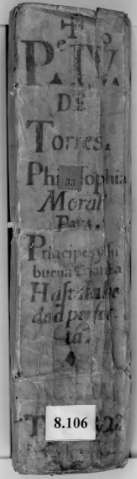 P.e IV.o
DE
Torres.
Philosophia
Moral
Para
Principes, y su
buena crianza
Hasta la he
dad perfec
ta.
8.106